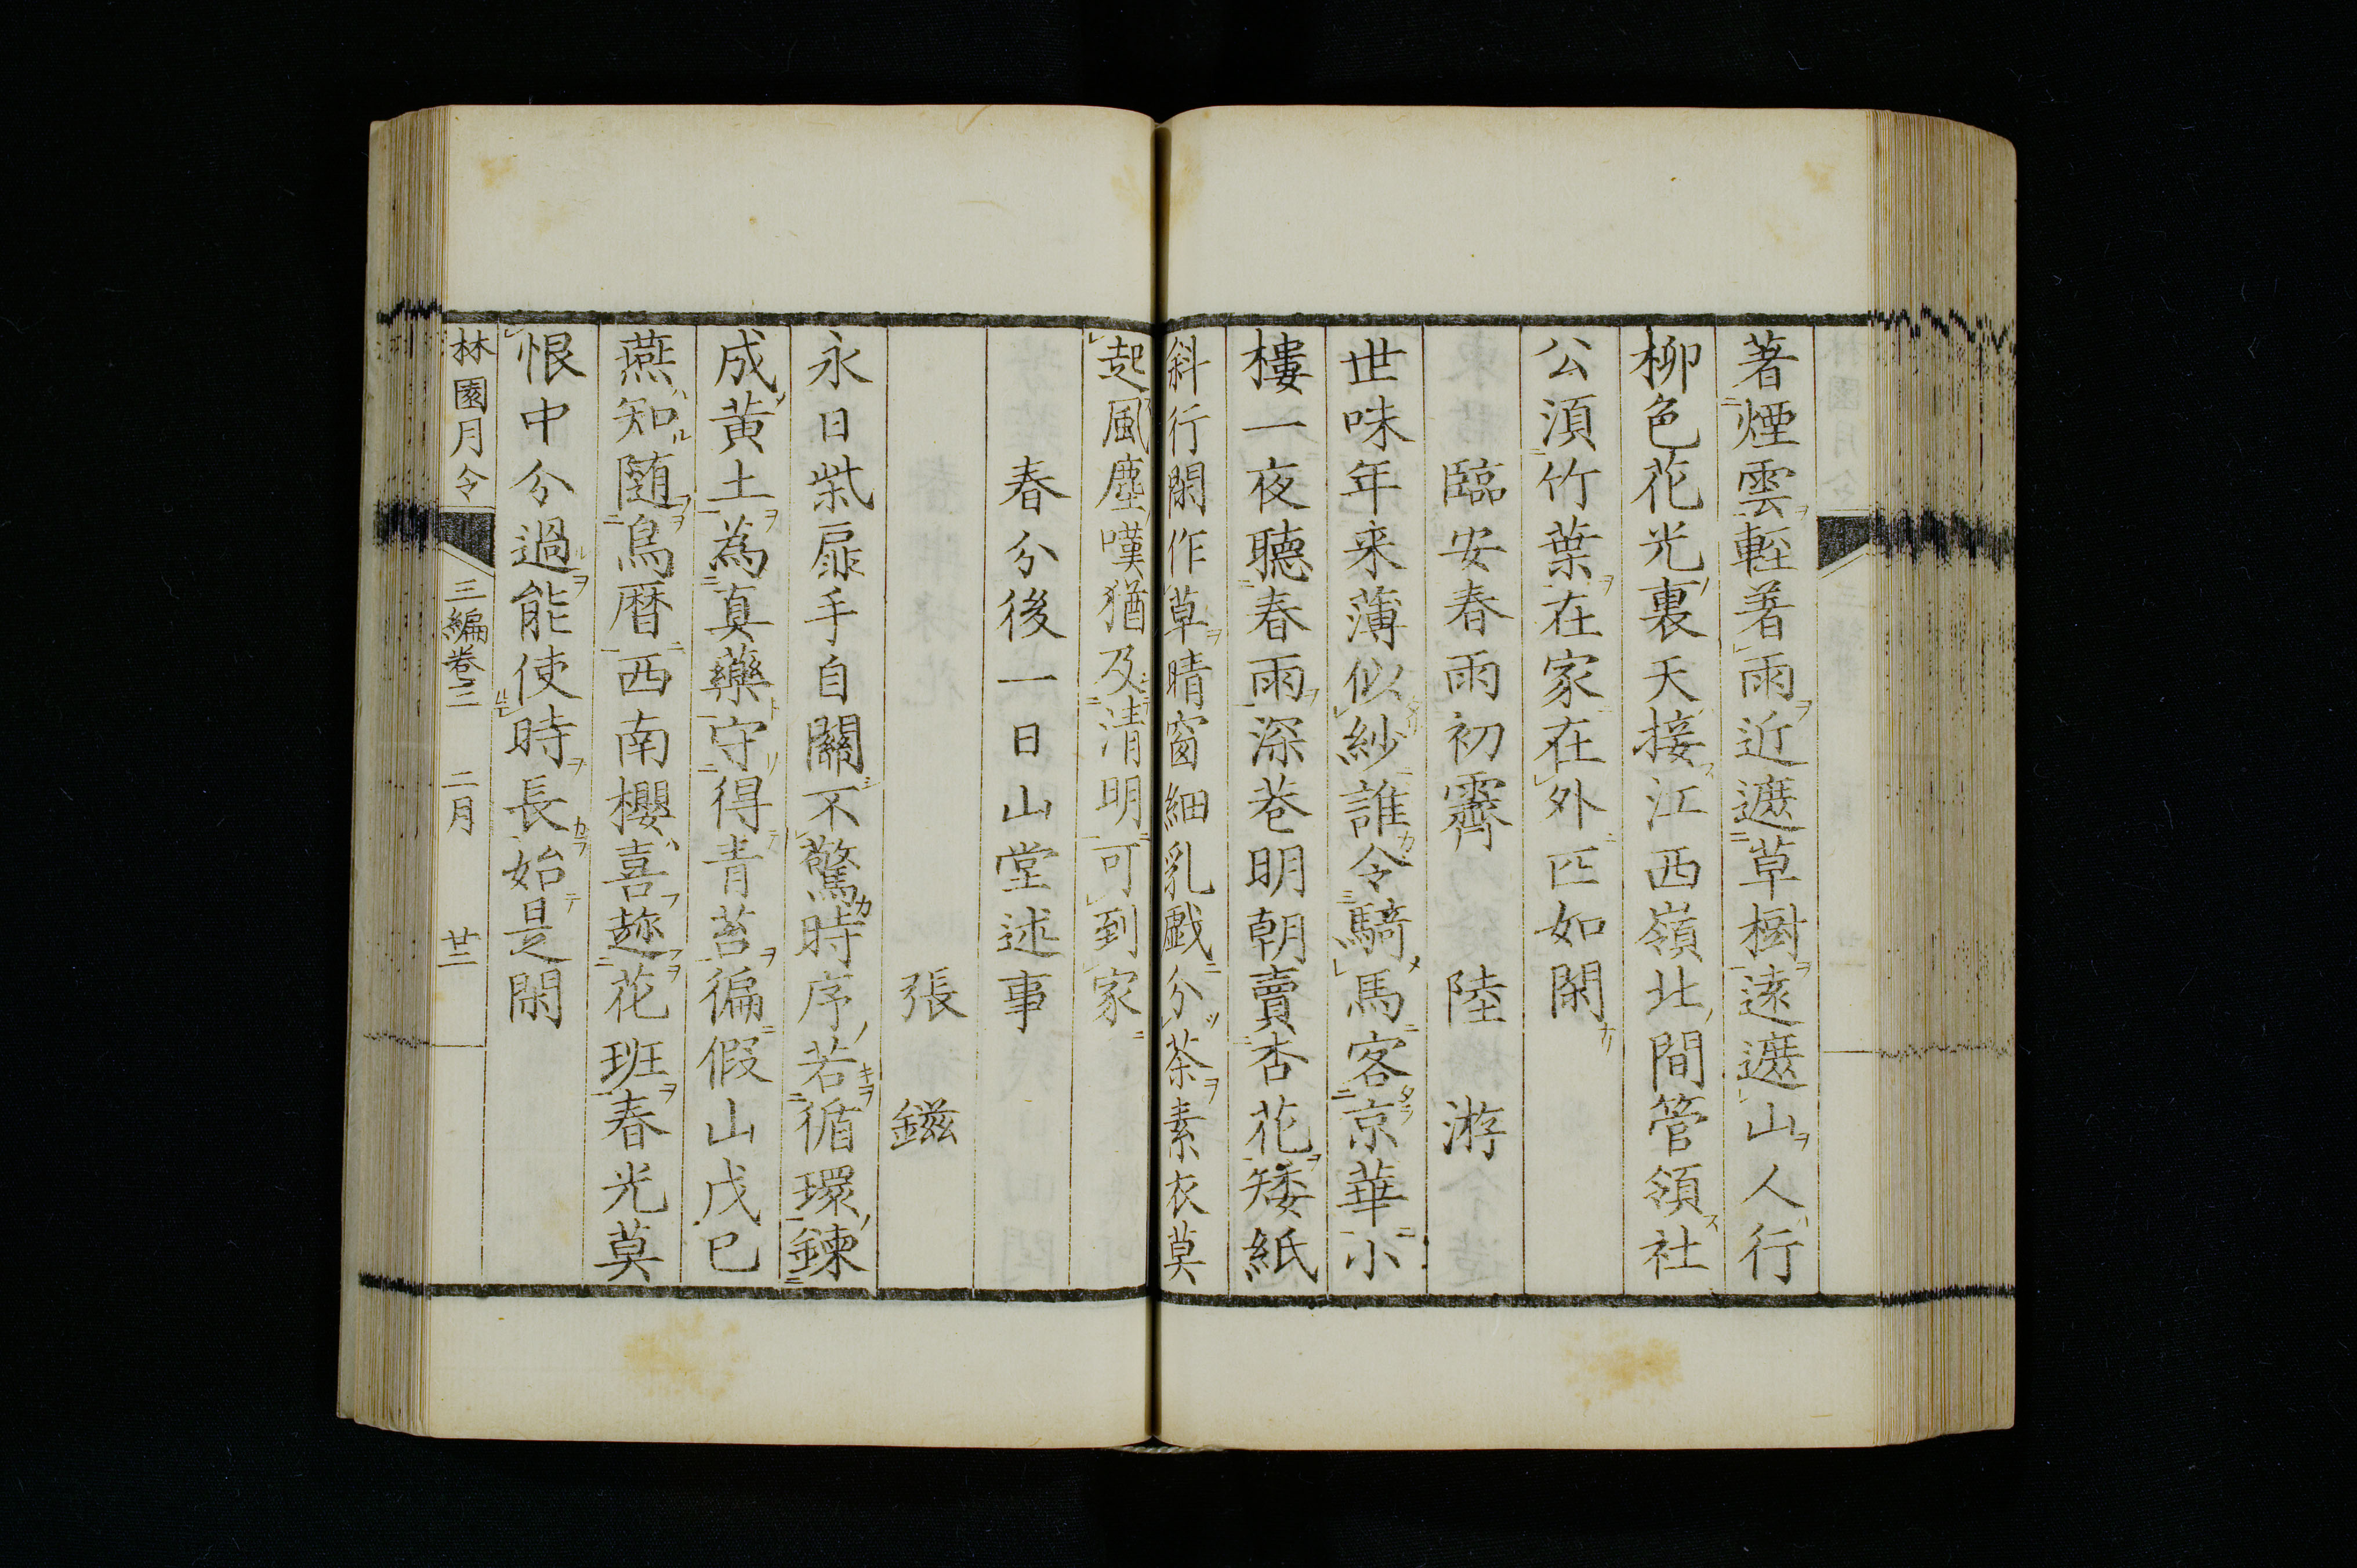 著煙雲輕著雨近遮草樹遠遮山人行
柳色花光裏天接江西嶺北間管領社
公湏竹葉在家在外匹如閑
臨安春雨初霽 陸 游
世味年来薄似紗誰令騎馬客京華小
樓一夜聽春雨深巷明朝賣杏花矮紙
斜行閑作草晴窗細乳戯分茶素衣莫
起風塵嘆猶及清明可到家
春分後一日山堂述事
張 鎡
永日柴扉手自關不驚時序若循環鍊
成黄土為真藥守得青苔徧假山戊巳
燕知随鳥暦西南櫻喜趂花班春光莫
恨中分過能使時長始是閑
林園月令 三編卷三 二月 廿二